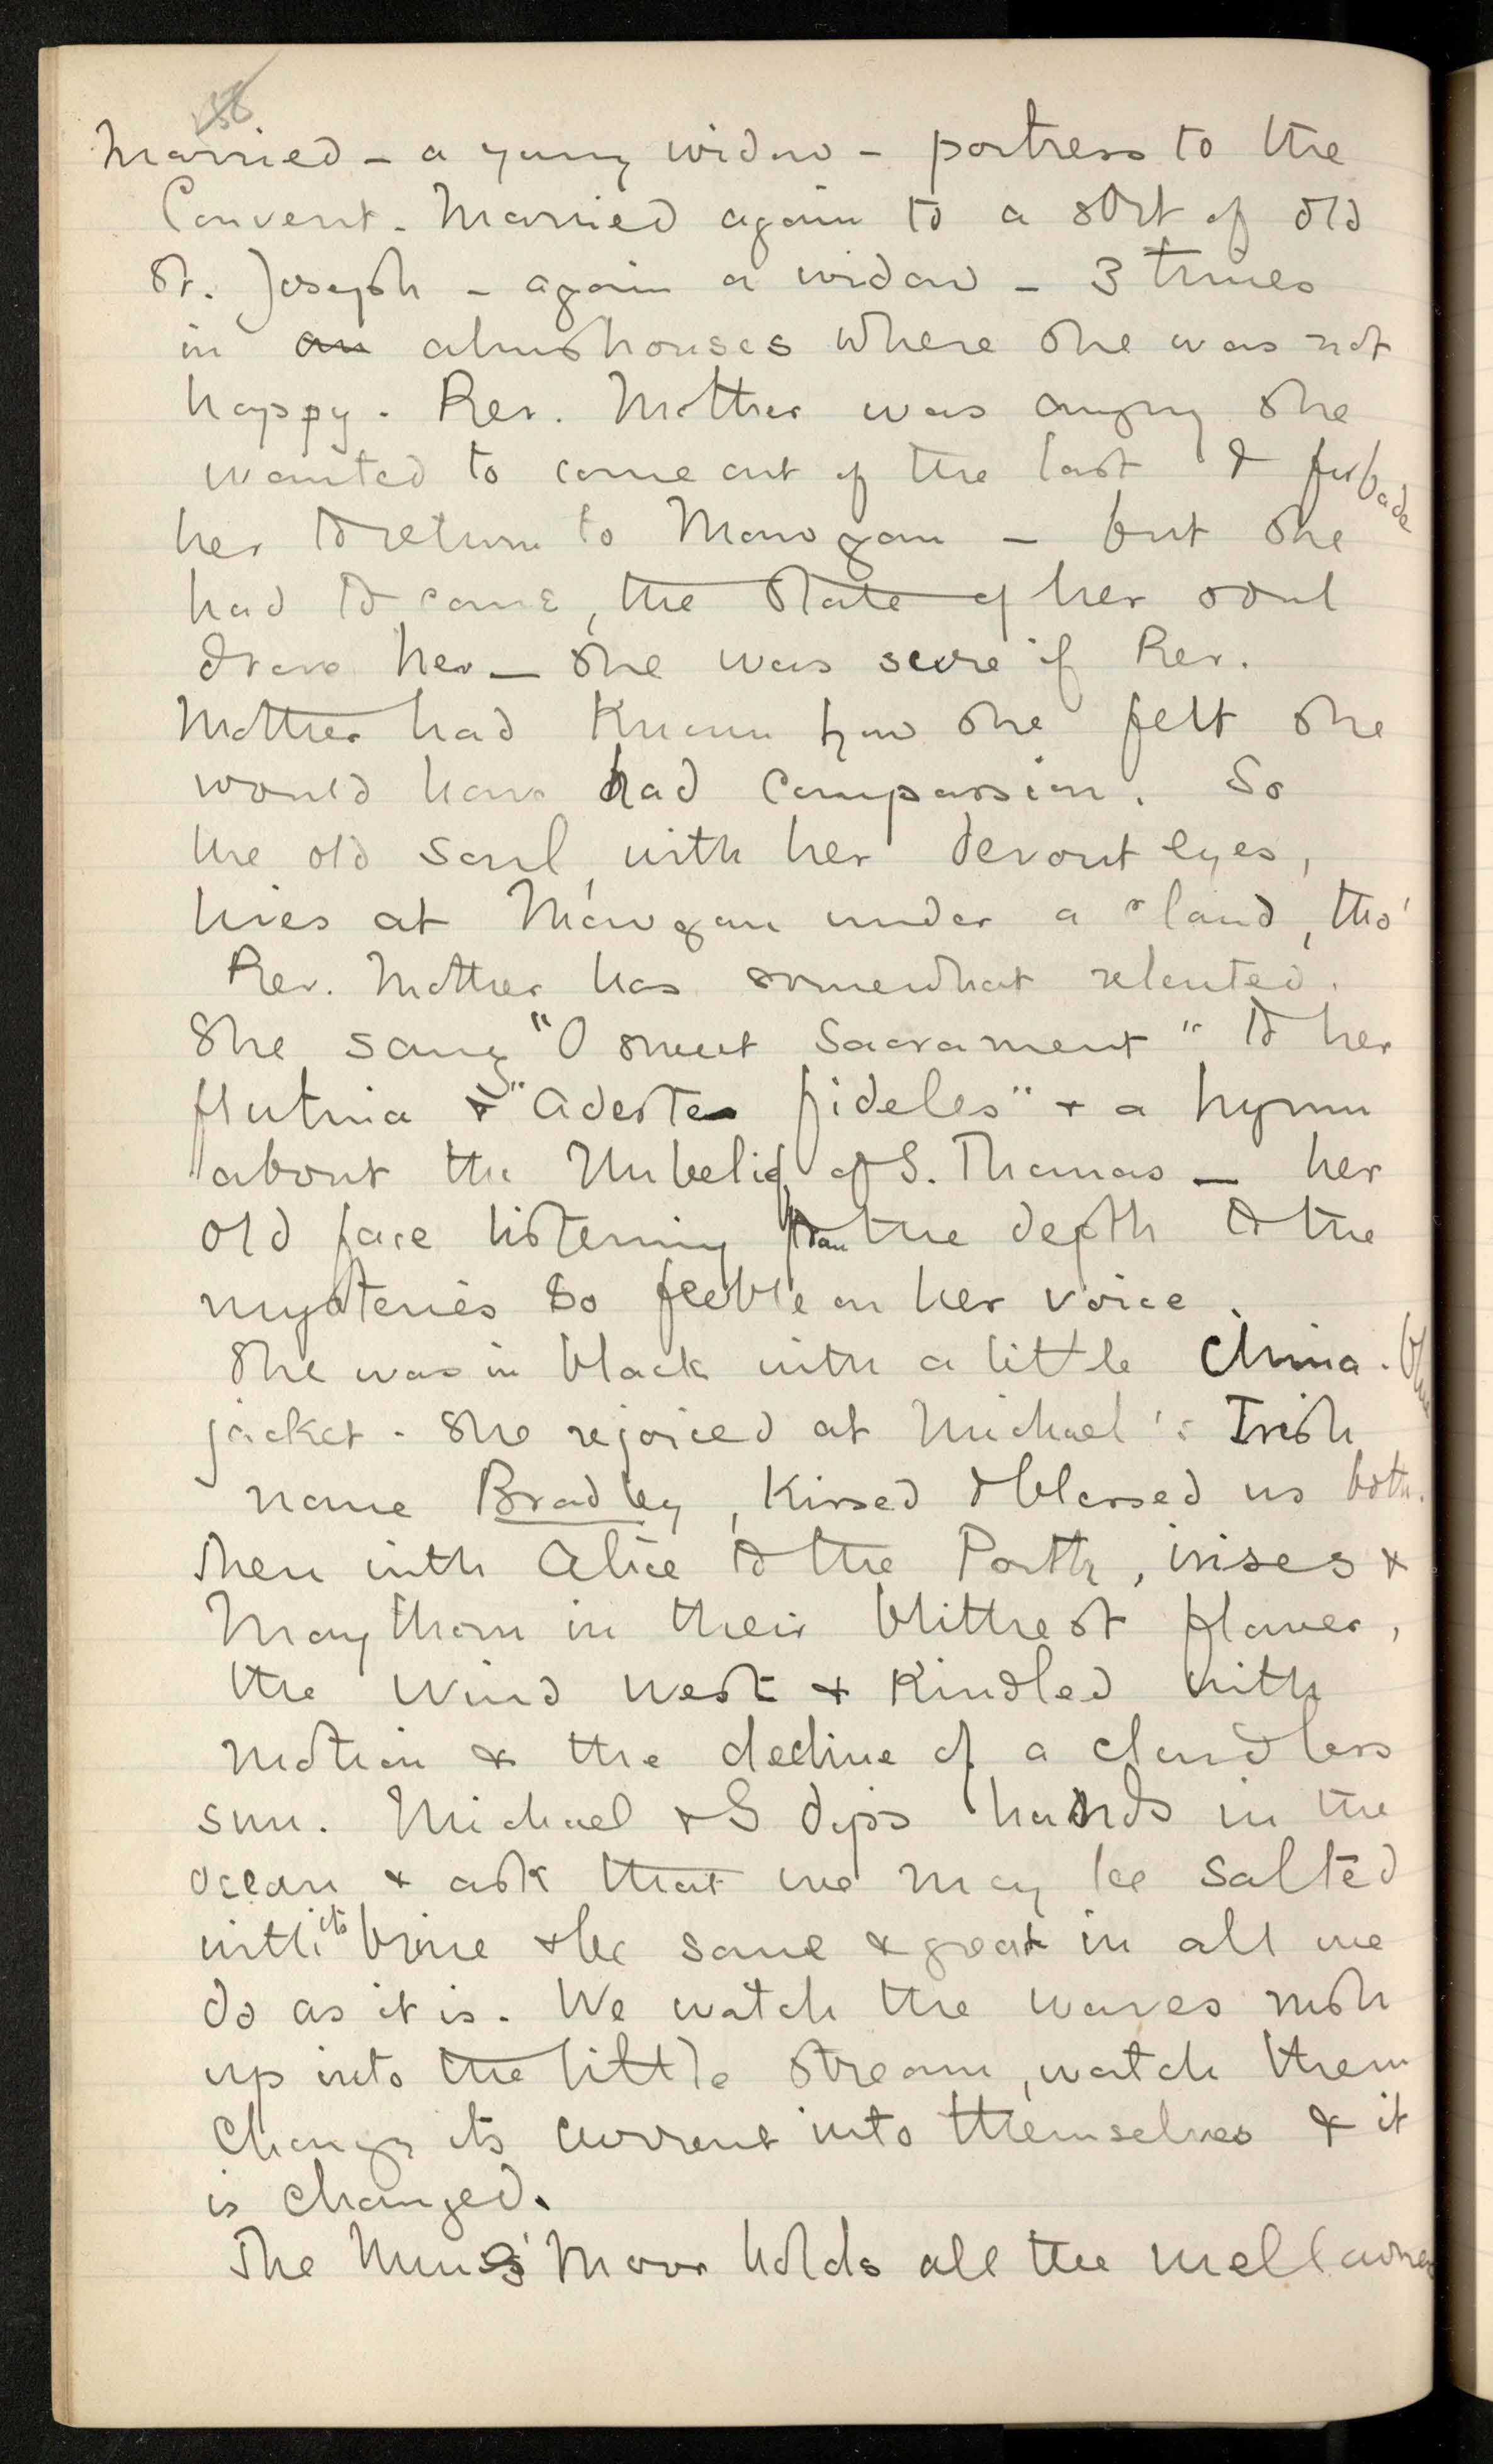 married – a young widow – portress to the
Convent. Married again to a sort of old
St. Joseph – again a widow – 3 times
in an almshouses where she was not
happy. Rev. Mother was angry she
wanted to come out of the last & forbade
her to return to Mawgan – but she
had to come, the state of her soul
drove her – she was sure if Rev.
Mother had known how she felt she
would have had compassion. So
the old soul, with her devout eyes,
lives at Mawgan under a cloud, tho'
Rev. Mother has somewhat relented.
She sang "O sweet Sacrament" to her
flutina & "Adeste fideles" & a hymn
about the Unbelief of S. Thomas – her
old face listening from the depth to the
mysteries so feeble on her voice.
She was in black with a little china-blue
jacket. She rejoiced at Michael's Irish
name Bradley, kissed & blessed us both.
Then with Alice to the Porth, irises &
May thorn in their blithest flower,
the wind west & kindled with
motion & the decline of a cloudless
sun. Michael & I dips hands in the
ocean & ask that we may be salted
with its brine & be sane & great in all we
do as it is. We watch the waves rush
up into the little stream, watch them
change its current into themselves & it
is changed.
The Nuns' Moor holds all the mellowness